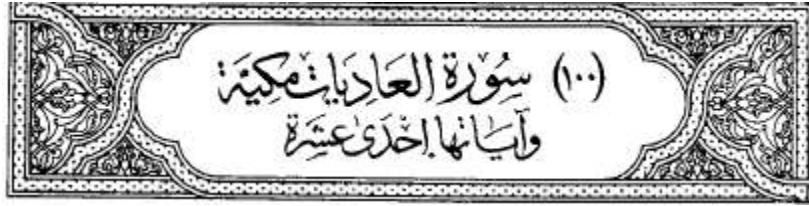 (١٠٠) سُورَة العَادِيَات مَكِيَّة
وَآيَاتها إِحْدَىٰ عَشَرَة